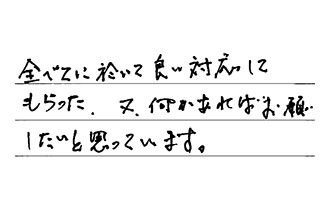 全べてに於いて良い対応して
もらった、又、何かあればお願い
したいと思っています。